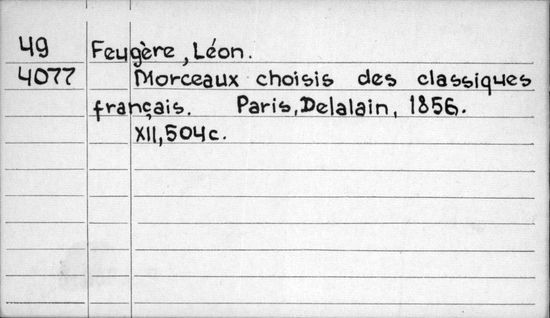 49 Feugère, Léon.
4077 Morceaux choisis des classiques
français. Paris, Delalain, 1856.
XII, 504 c.